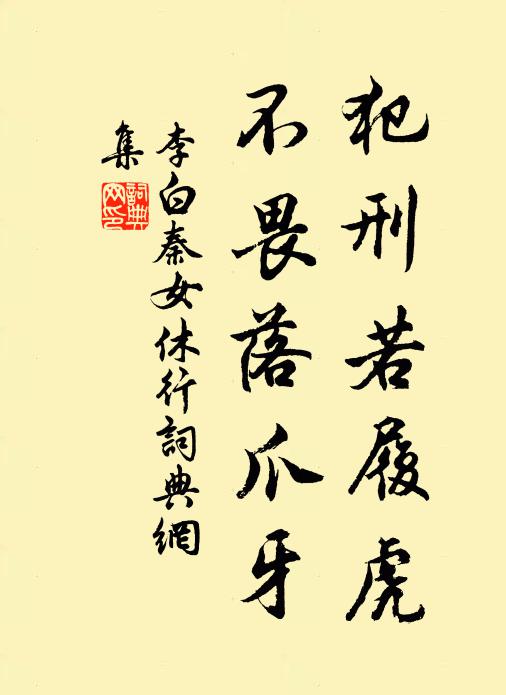 犯刑若履虎
不畏落爪牙
李白秦女休行詞典網
集
詞典網印